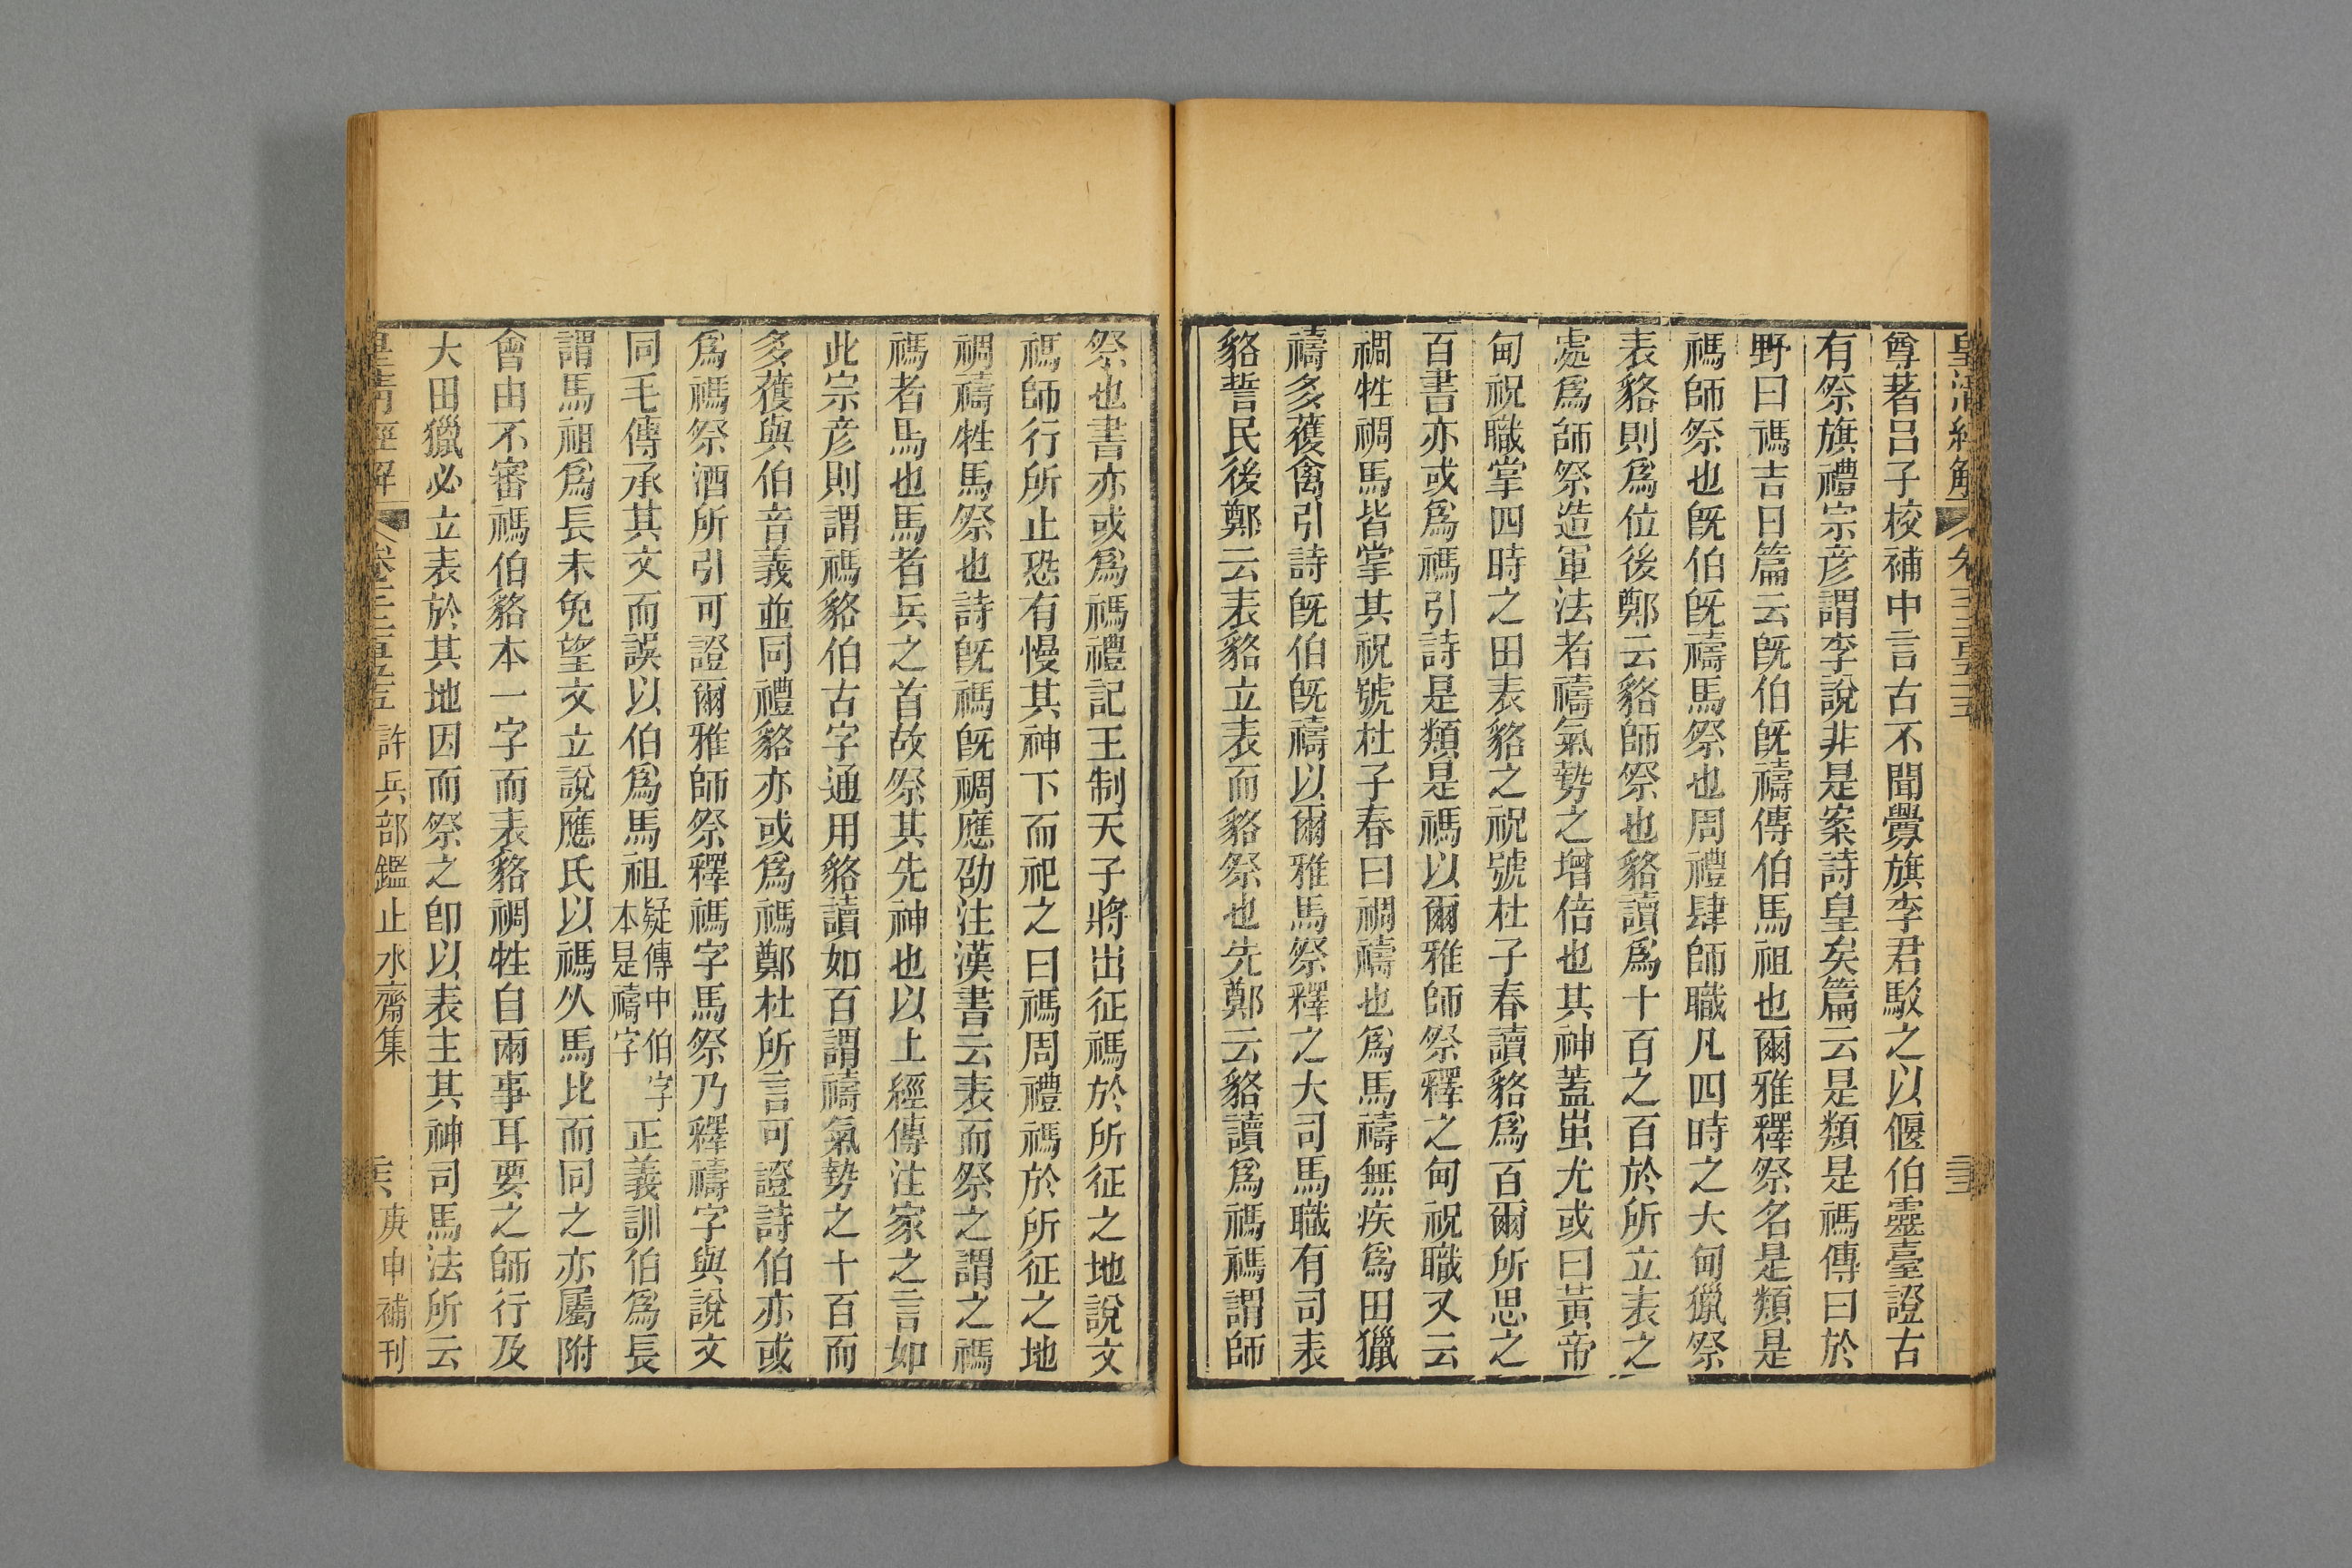 皇清經解
尊著呂子校補中言古不聞釁旗李君駁之以偃伯靈臺證古
有祭旗禮宗彦謂李說非是案詩皇矣篇云是類是禡傳曰於
野曰禡吉日篇云旣伯旣禱傳伯馬祖也爾雅釋祭名是類是
禡師祭也旣伯旣禱馬祭也周禮肆師職凡四時之大甸獵祭
表貉則爲位後鄭云貉師祭也貉讀爲十百之百於所立表之
處爲師祭造軍法者禱氣勢之增倍也其神蓋蚩尤或曰黃帝
甸祝職掌四時之田表貉之祝號杜子春讀貉爲百爾所思之
百書亦或爲禡引詩是類是禡以爾雅師祭釋之甸祝職又云
禂牲禂馬皆掌其祝號杜子春曰禂禱也爲馬禱無疾爲田獵
禱多獲禽引詩旣伯旣禱以爾雅馬祭釋之大司馬職有司表
貉誓民後鄭云表貉立表而貉祭也先鄭云貉讀爲禡禡謂師
祭也書亦或爲禡禮記王制天子將出征禡於所征之地說文
禡師行所止恐有慢其神下而祀之曰禡周禮禡於所征之地
禂禱牲馬祭也詩旣禡旣禂應劭注漢書云表而祭之謂之禡
禡者馬也馬者兵之首故祭其先神也以上經傳注家之言如
此宗彦則謂禡貉伯古字通用貉讀如百謂禱氣勢之十百而
多獲與伯音義並同禮貉亦或爲禡鄭杜所言可證詩伯亦或
爲禡祭酒所引可證爾雅師祭釋禡字馬祭乃釋禱字與說文
同毛傳承其文而誤以伯爲馬祖疑傳中伯字本是禱字正義訓伯爲長
謂馬祖爲長未免望文立說應氏以禡从馬比而同之亦屬附
會由不審禡伯貉本一字而表貉禂牲自兩事耳要之師行及
大田獵必立表於其地因而祭之卽以表主其神司馬法所云
皇清經解 許兵部鑑止水齋集 庚申補刊